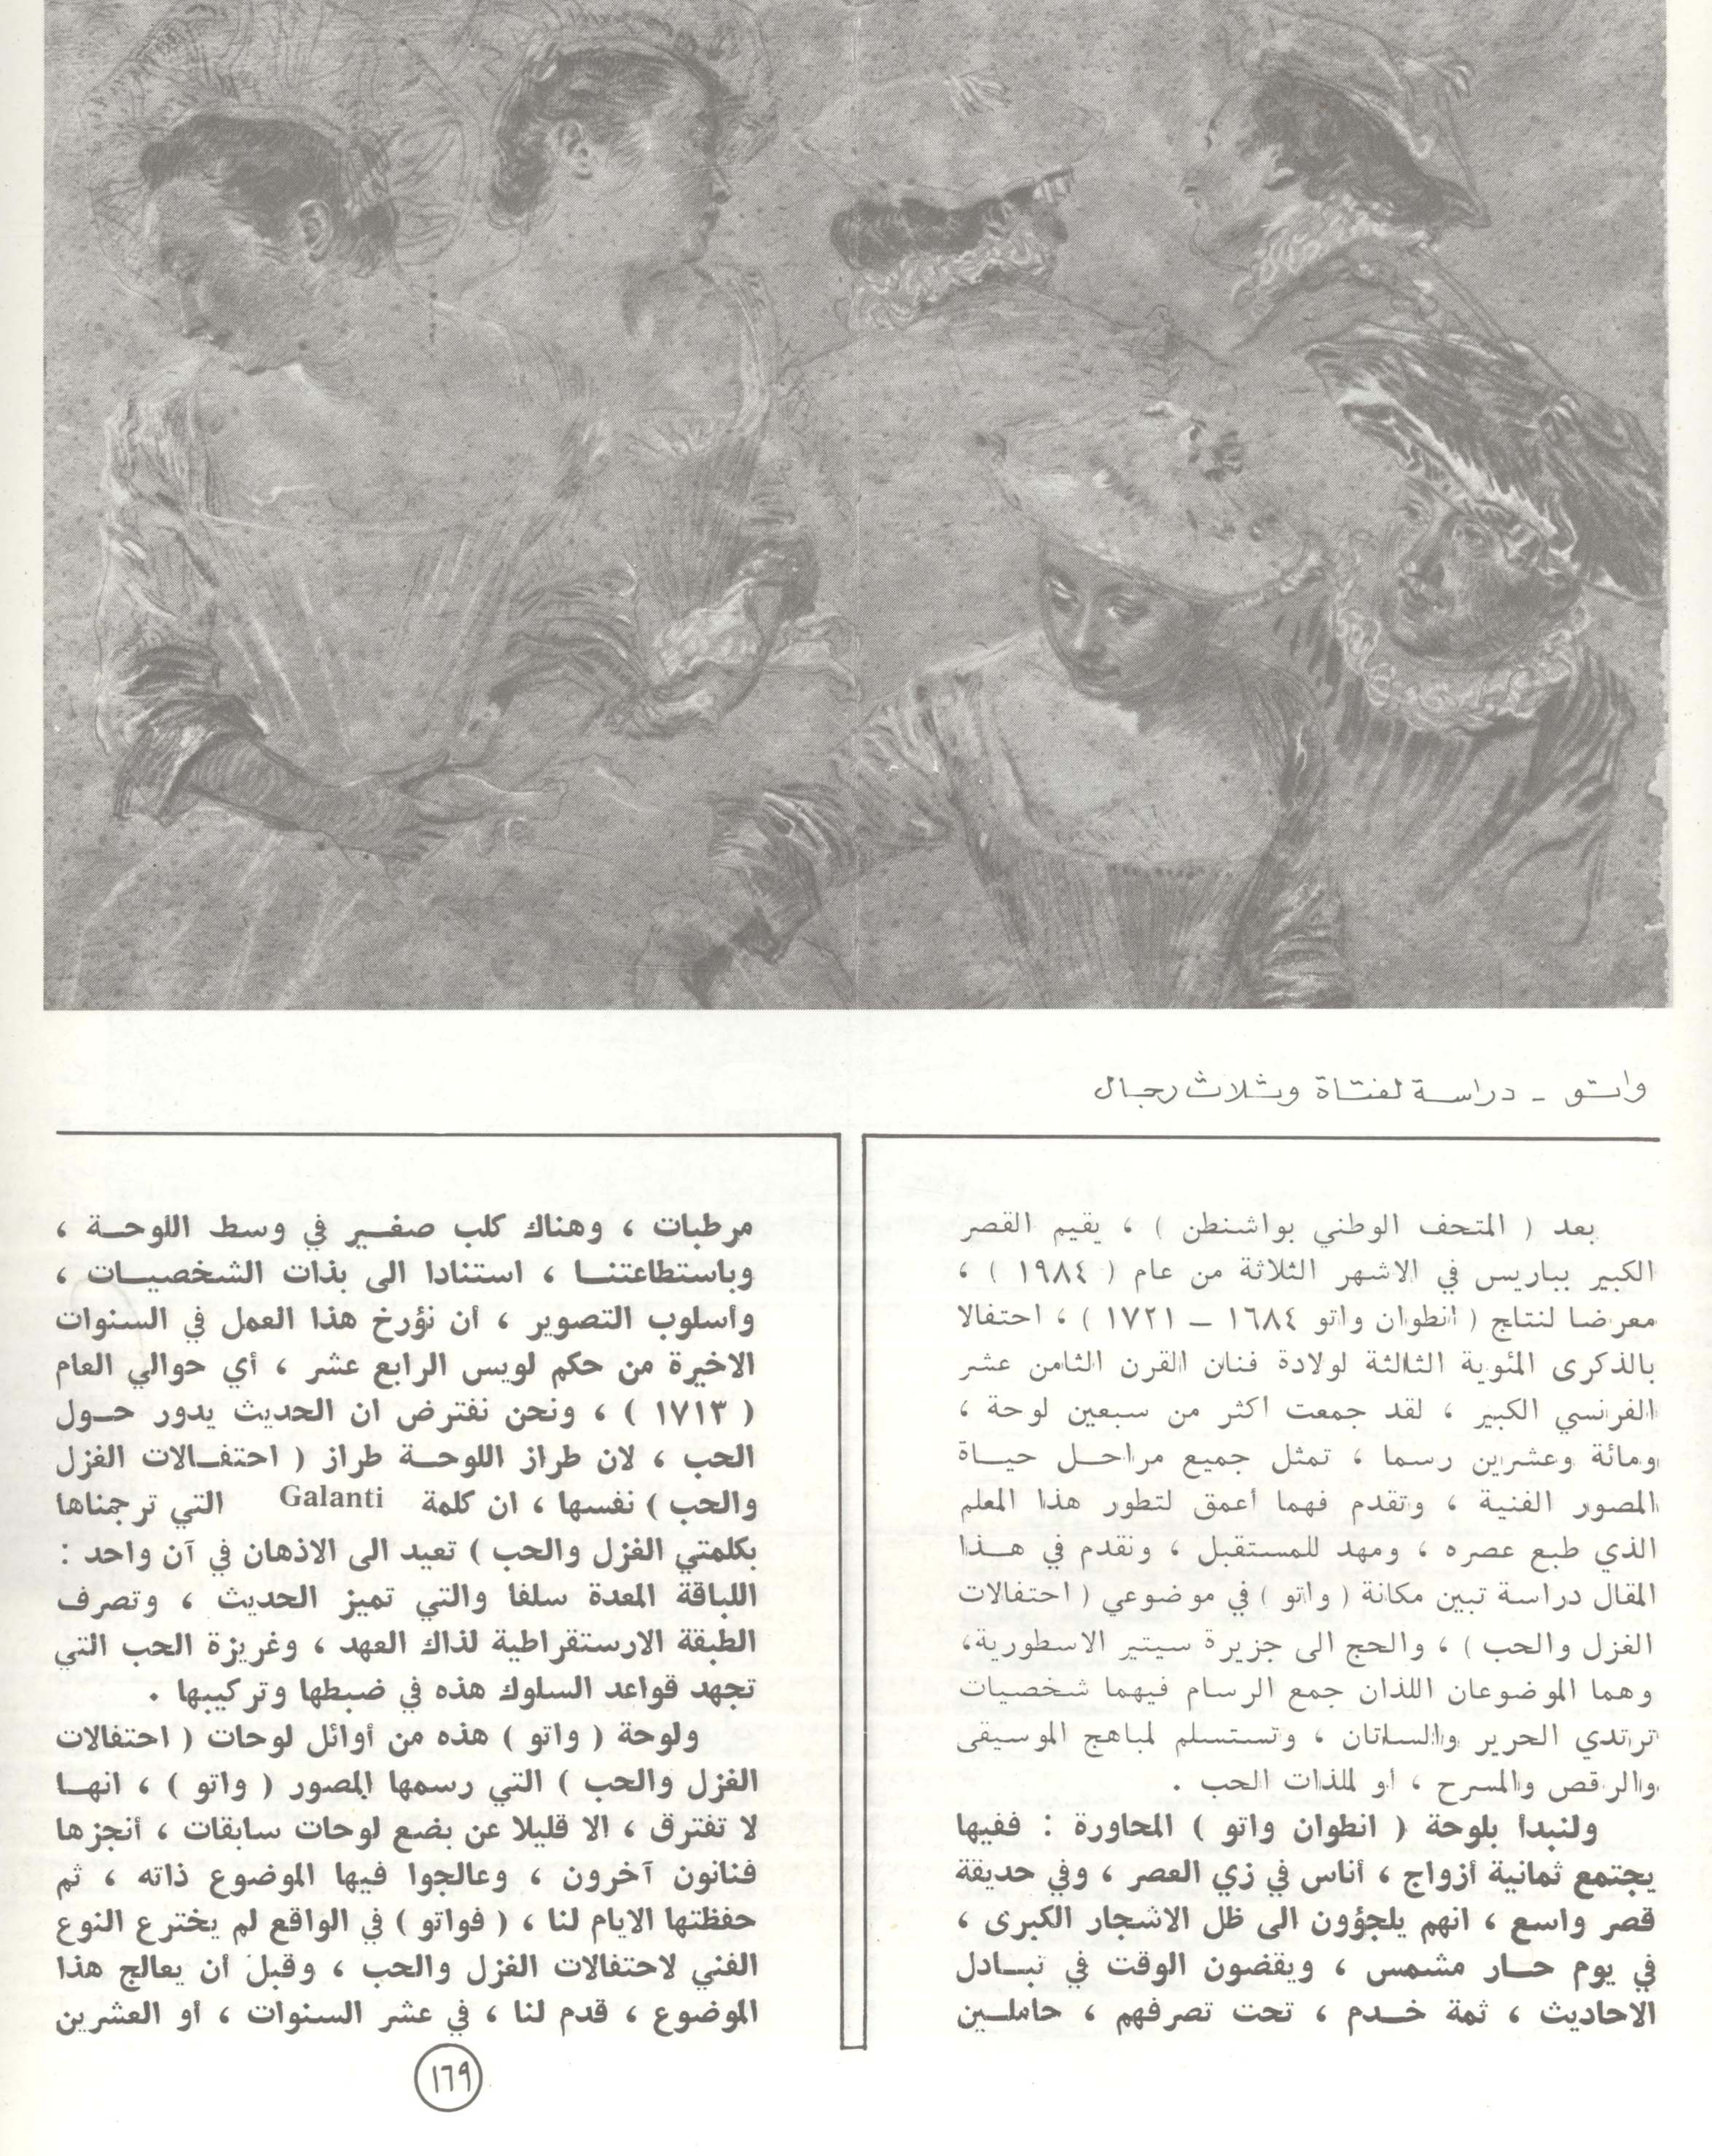 واتو - دراسة لفتاة وثلاث رجال
بعد ( المتحف الوطني بواشنطن ) ، يقيم القصر
الكبير بباريس في الاشهر الثلاثة من عام ( ١٩٨٤ ) ،
معرضا لنتاج ( انطوان واتو ١٦٨٤ – ١٧٢١ ) ، احتفالا
بالذكرى المئوية الثالثة لولادة فنان القرن الثامن عشر
الفرنسي الكبير ، لقد جمعت اكثر من سبعين لوحة ،
ومائة وعشرين رسما ، تمثل جميع مراحل حياة
المصور الفنية ، وتقدم فهما أعمق لتطور هذا المعلم
الذي طبع عصره ، ومهد للمستقبل ، ونقدم في هذا
المقال دراسة تبين مكانة ( واتو ) في موضوعي ( احتفالات
الغزل والحب ) ، والحج الى جزيرة سيتير الاسطورية،
وهما الموضوعان اللذان جمع الرسام فيهما شخصيات
ترتدي الحرير والساتان ، وتستسلم لمباهج الموسيقى
والرقص والمسرح ، او لملذات الحب .
ولنبدأ بلوحة ( انطوان واتو ) المحاورة : ففيها
يجتمع ثمانية أزواج ، أناس في زي العصر ، وفي حديقة
قصر واسع ، انهم يلجؤون الى ظل الاشجار الكبرى ،
في يوم حار مشمس ، ويقضون الوقت في تبادل
الاحاديث ، ثمة خدم ، تحت تصرفهم ، حاملين
مرطبات ، وهناك كلب صغير في وسط اللوحة ،
وباستطاعتنا ، استنادا الى بذات الشخصيات ،
وأسلوب التصوير ، أن نؤرخ هذا العمل في السنوات
الاخيرة من حكم لويس الرابع عشر ، أي حوالي العام
( ١٧١٣ ) ، ونحن نفترض ان الحديث يدور حول
الحب ، لان طراز اللوحة طراز ( احتفالات الغزل
والحب ) نفسها ، ان كلمة Galanti التي ترجمناها
بكلمتي الغزل والحب ) تعيد الى الاذهان في آن واحد :
اللباقة المعدة سلفا والتي تميز الحديث ، وتصرف
الطبقة الارستقراطية لذاك العهد ، وغريزة الحب التي
تجهد قواعد السلوك هذه في ضبطها وتركيبها .
ولوحة ( واتو ) هذه من أوائل لوحات ( احتفالات
الغزل والحب ) التي رسمها المصور ( واتو ) ، انها
لا تفترق ، الا قليلا عن بضع لوحات سابقات ، أنجزها
فنانون آخرون ، وعالجوا فيها الموضوع ذاته ، ثم
حفظتها الايام لنا ، ( فواتو ) في الواقع لم يخترع النوع
الفني لاحتفالات الغزل والحب ، وقبل أن يعالج هذا
الموضوع ، قدم لنا ، في عشر السنوات ، أو العشرين
١٦٩